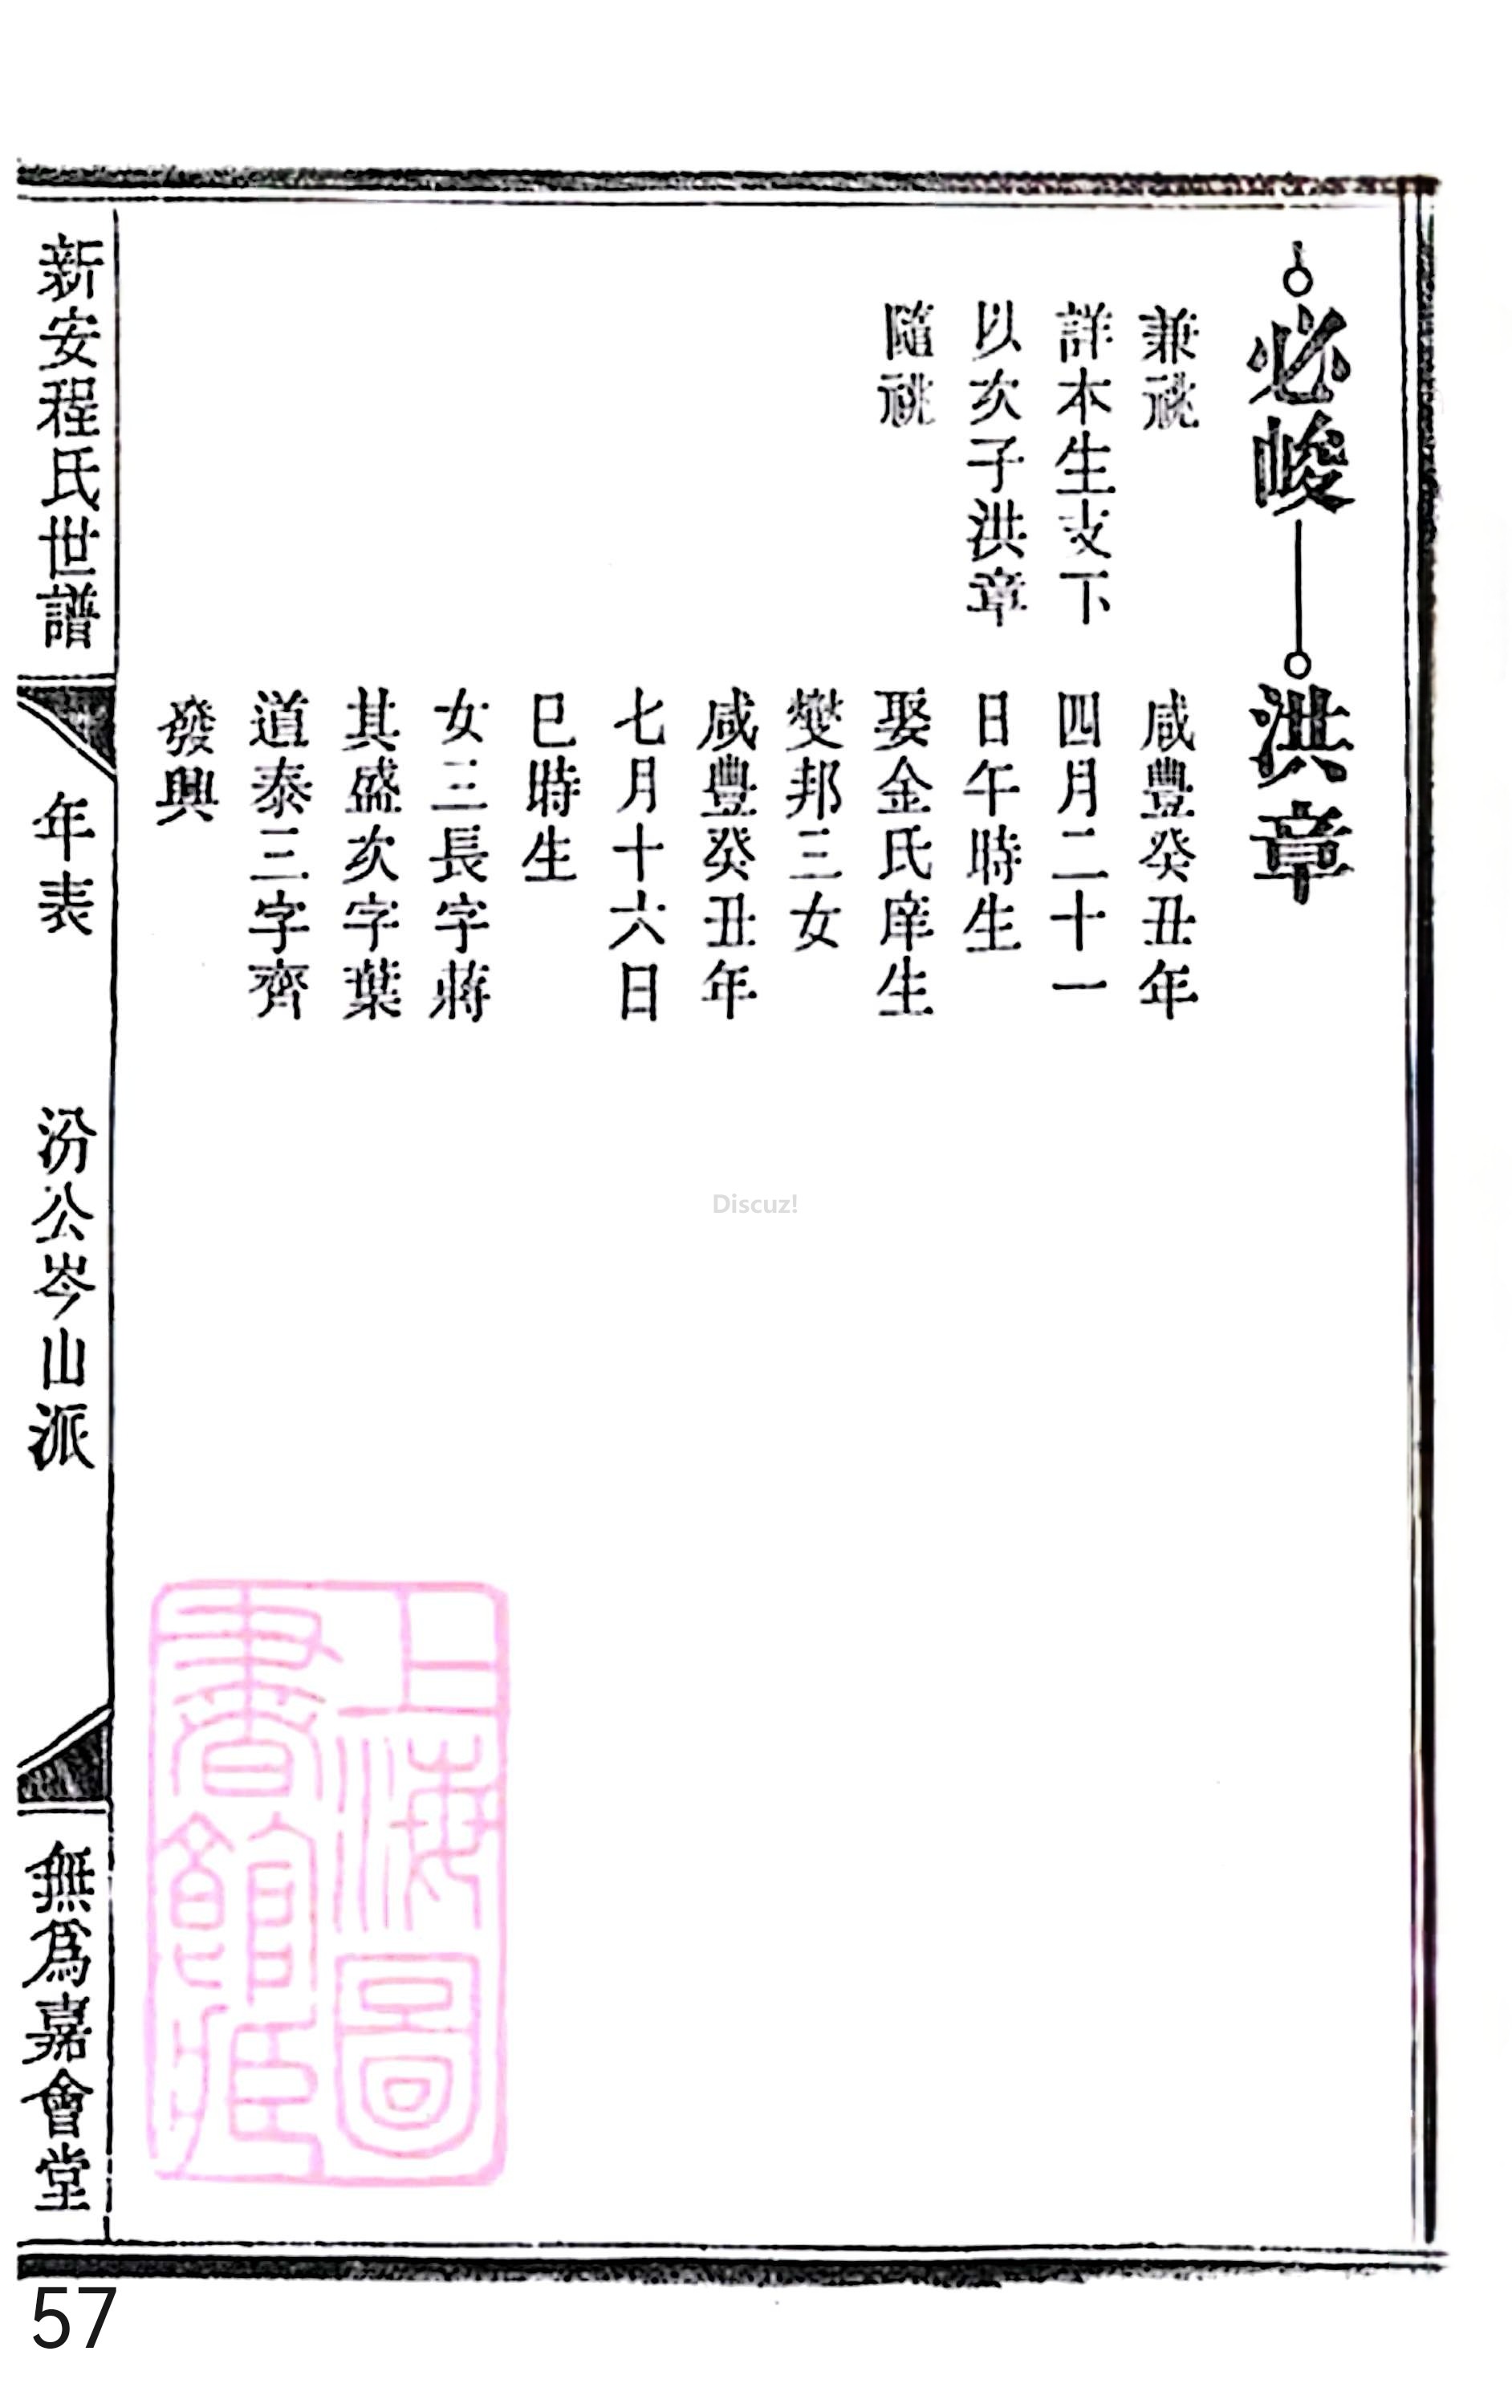 必峻
兼祧
詳本生支下
以次子洪章
隨祧
洪章
咸豐癸丑年
四月二十一
日午時生
娶金氏庠生
燮邦三女
咸豐癸丑年
七月十六日
巳時生
女三長字蔣
其盛次字葉
道泰三字齊
發興
新安程氏世譜
年表
汾公岑山派
無爲嘉會堂
上海圖
書館藏
Discuz!
57